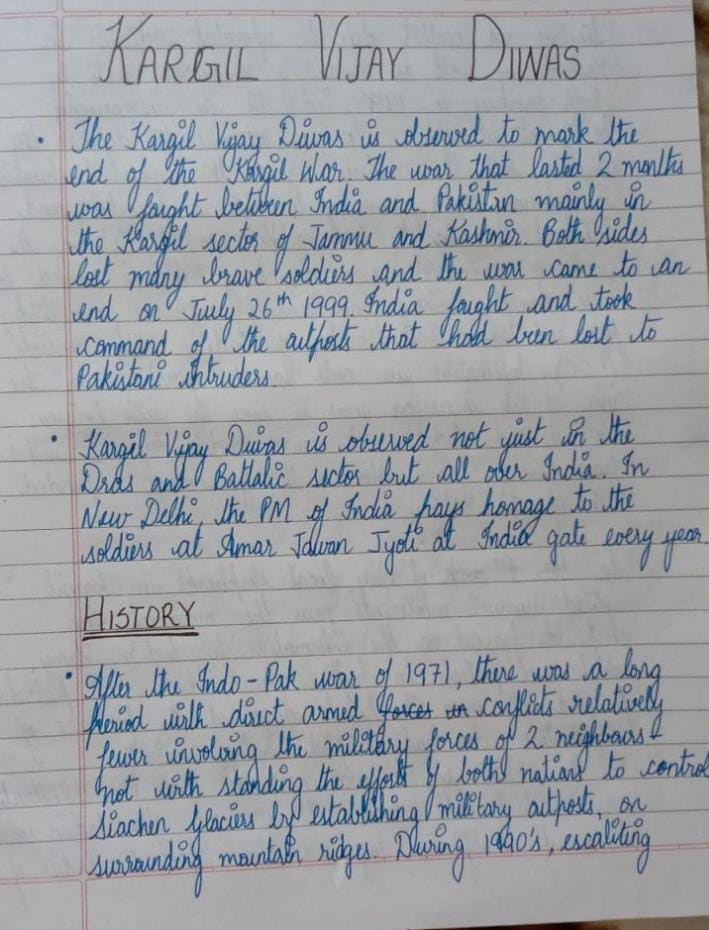 KARGIL VIJAY DIWAS
• The Kargil Vijay Diwas is observed to mark the
end of the Kargil War. The war that lasted 2 months
was fought between India and Pakistan mainly in
the Kargil sector of Jammu and Kashmir. Both sides
lost many brave soldiers and the war came to an
end on July 26th 1999. India fought and took
command of the outposts that had been lost to
Pakistani intruders.
• Kargil Vijay Diwas is observed not just in the
Dras and Battalic sector but all over India. In
New Delhi, the PM of India pays homage to the
soldiers at Amar Jawan Jyoti at India gate every year.
HISTORY
• After the Indo-Pak war of 1971, there was a long
period with direct armed forces in conflicts relatively
fewer involving the military forces of 2 neighbours -
not with standing the effort of both nations to control
Siachen Glaciers by establishing military outposts, on
surrounding mountain ridges. During 1990's, escaliting